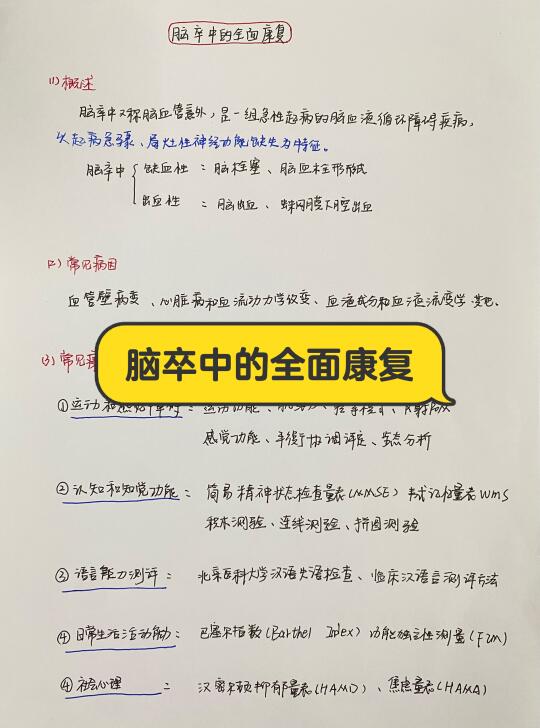 脑卒中的全面康复
(1) 概述
脑卒中又称脑血管意外，是一组急性起病的脑血液循环障碍疾病，
以起病急骤、局灶性神经功能缺失为特征。
脑卒中 { 缺血性 ： 脑栓塞、脑血栓形成
出血性 ： 脑出血、蛛网膜下腔出血
(2) 常见病因
血管壁病变、心脏病和血流动力学改变、血液成分和血液流变学变化.
脑卒中的全面康复
(3) 常见
①运动和感觉障碍 ： 运动功能、
感觉功能、平衡协调评定、步态分析
②认知和知觉功能 ： 简易精神状态检查量表(MMSE) 韦氏记忆量表WMS
积木测验、连线测验、拼图测验
③语言能力测评 ： 北京医科大学汉语失语检查、临床汉语言测评方法
④日常生活活动能力： 巴塞尔指数(Barthel Index) 功能独立性测量(FIM)
④社会心理 ： 汉密尔顿抑郁量表(HAMD)、焦虑量表(HAMA)